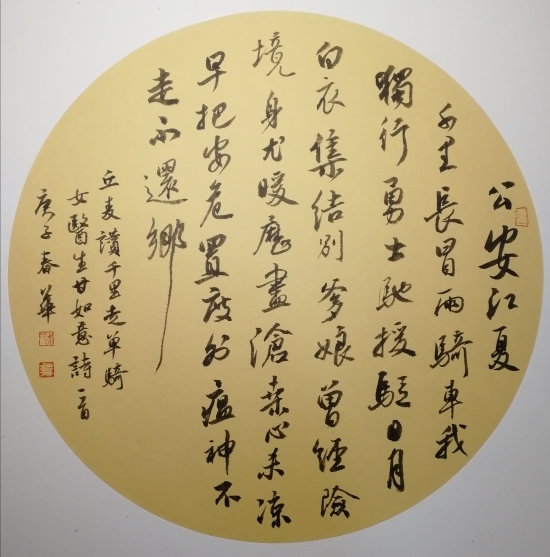 公安江夏
千里長冒雨騎車我
獨行勇士馳援日月
白衣集結別爹娘曾經險
境身尤暖歷盡滄桑心未凉
早把安危置度外瘟神不
走不還鄉
丘麦讚千里走單騎
女醫生甘如意詩一首
庚子春華